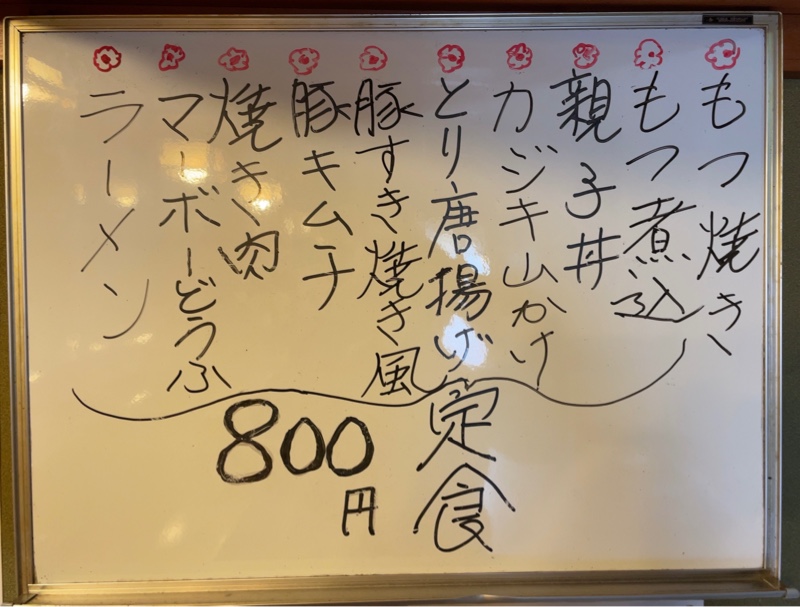 もつ焼き
もつ煮込
親子丼
カジキ山かけ
とり唐揚げ
豚すき焼き風
豚キムチ
焼き肉
マーボーどうふ
ラーメン
定食
800円